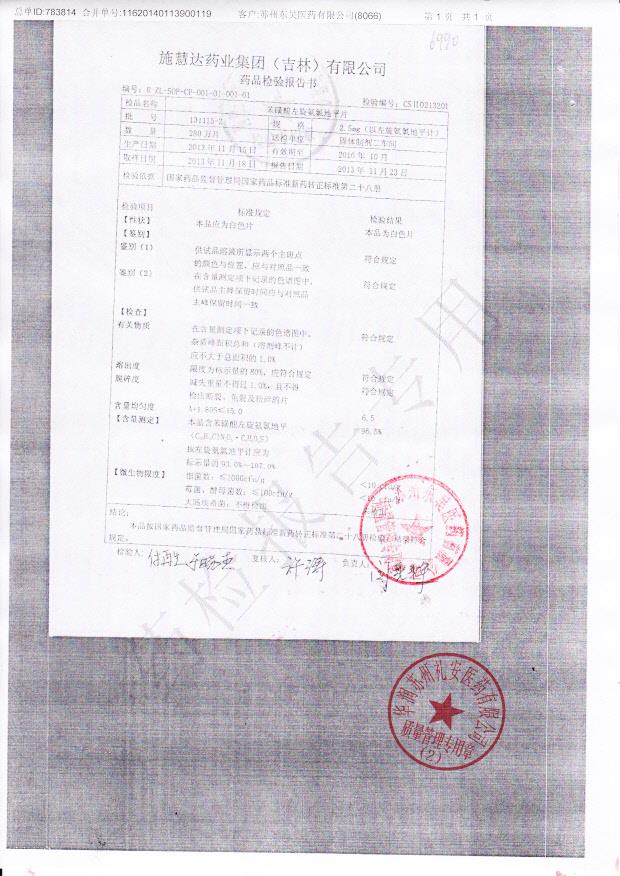 总单ID:783814 合并单号:11620140113900119 客户:苏州东吴医药有限公司(8066) 第 1 页 共 1 页
6990
施慧达药业集团（吉林）有限公司
药品检验报告书
编号：R-ZL-SOP-CP-001-01-001-01 检验编号：CS110213201
检品名称 苯磺酸左旋氨氯地平片
批 号 131115-2 规 格 2.5mg（以左旋氨氯地平计）
数 量 280万片 送检单位 固体制剂二车间
生产日期 2013年11月15日 有效期至 2016年10月
取样日期 2013年11月18日 报告日期 2013年11月23日
检验依据 国家药品监督管理局国家药品标准新药转正标准第二十八册
检验项目 标准规定 检验结果
【性状】 本品应为白色片 本品为白色片
【鉴别】
鉴别（1） 供试品溶液所显示两个主斑点 符合规定
的颜色与位置，应与对照品一致
鉴别（2） 在含量测定项下记录的色谱图中， 符合规定
供试品主峰保留时间应与对照品
主峰保留时间一致
【检查】
有关物质 在含量测定项下记录的色谱图中， 符合规定
杂质峰面积总和（溶剂峰不计）
应不大于总面积的1.0%
溶出度 限度为标示量的80%，应符合规定 符合规定
脆碎度 减失重量不得过1.0%，且不得 符合规定
检出断裂、龟裂及粉碎的片
含量均匀度 A+1.80S≤15.0 6.5
【含量测定】 本品含苯磺酸左旋氨氯地平 96.5%
按左旋氨氯地平计应为
标示量的93.0%~107.0%
【微生物限度】 细菌数：≤1000cfu/g
霉菌、酵母菌数：≤100cfu/g
大肠埃希菌：不得检出
结论：
本品按国家药品监督管理局国家药品标准新药转正标准第二十八册检验，结果符合
规定。
检验人： 复核人：许涛 负责人：
药检报告专用
华润苏州礼安医药有限公司
质量管理专用章
（2）